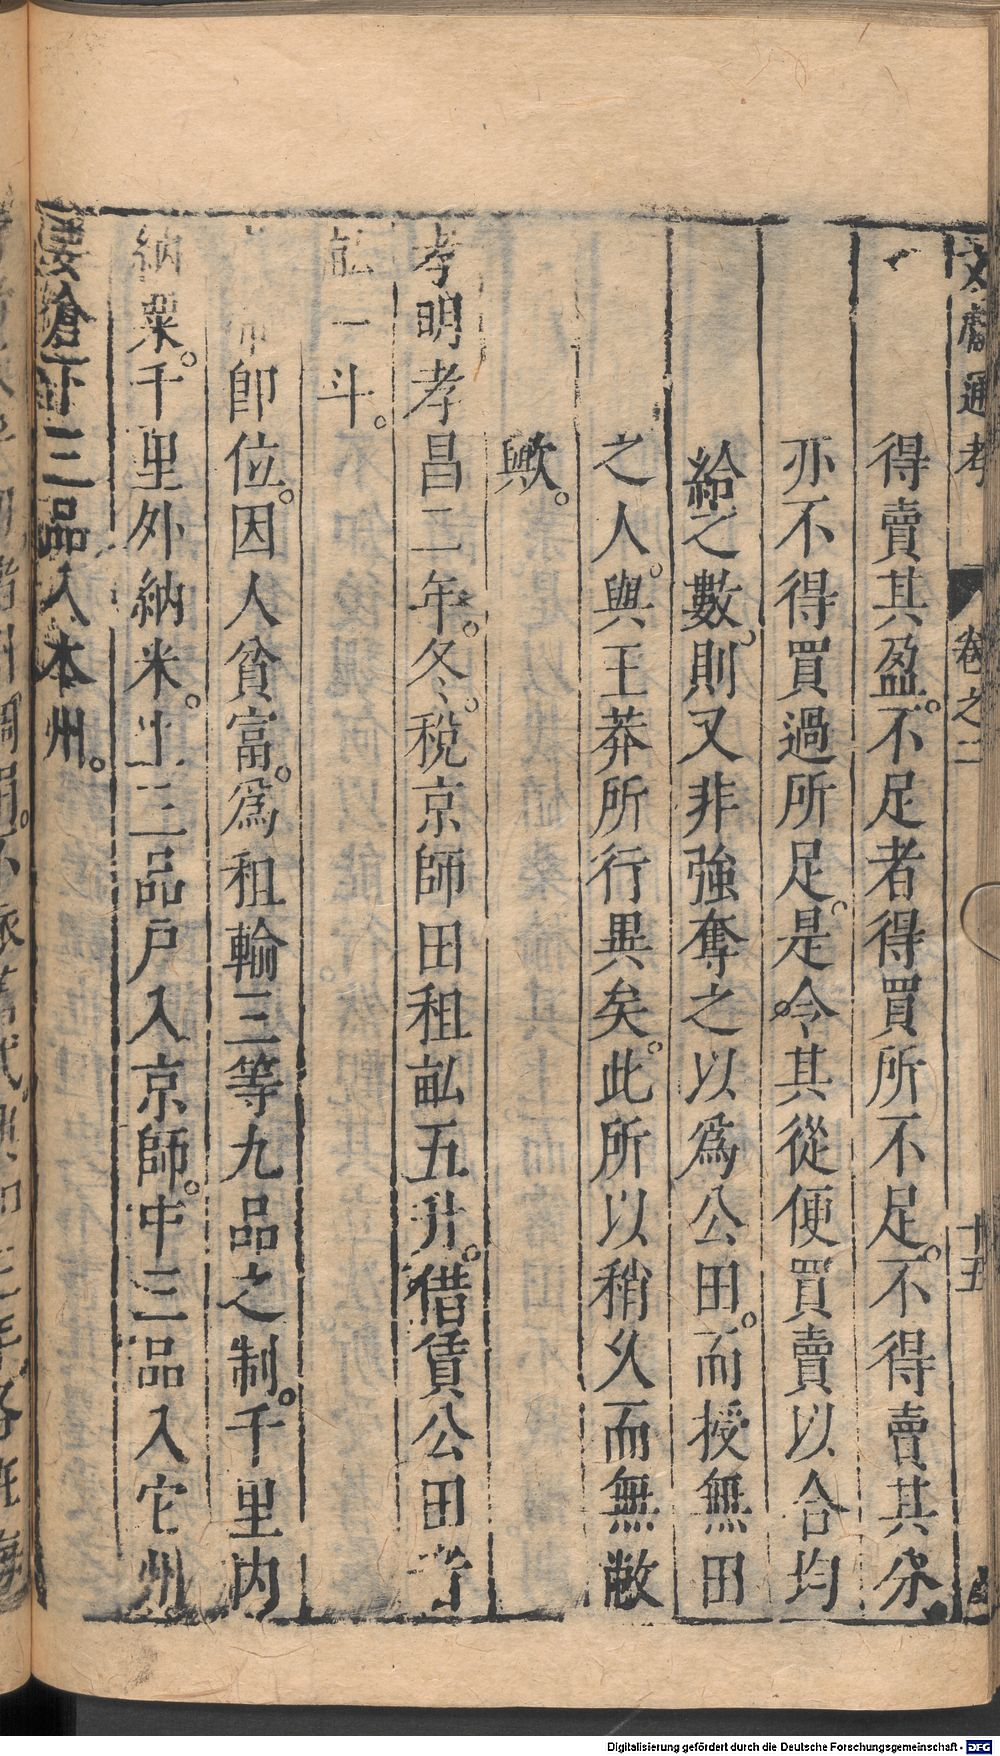 文獻通考 卷之二 十五
得賣其盈。不足者得買所不足。不得賣其分
亦不得買過所足。是令其從便買賣以合均
給之數。則又非強奪之以爲公田。而授無田
之人。與王莽所行異矣。此所以稍久而無敝
歟。
孝明孝昌二年。冬。稅京師田租畝五升。借賃公田者
畝一斗。
卽位。因人貧富。爲租輸三等九品之制。千里內
納粟。千里外納米。上三品戶入京師。中三品入它州
要倉下三品入本州。
Digitalisierung gefördert durch die Deutsche Forschungsgemeinschaft - DFG